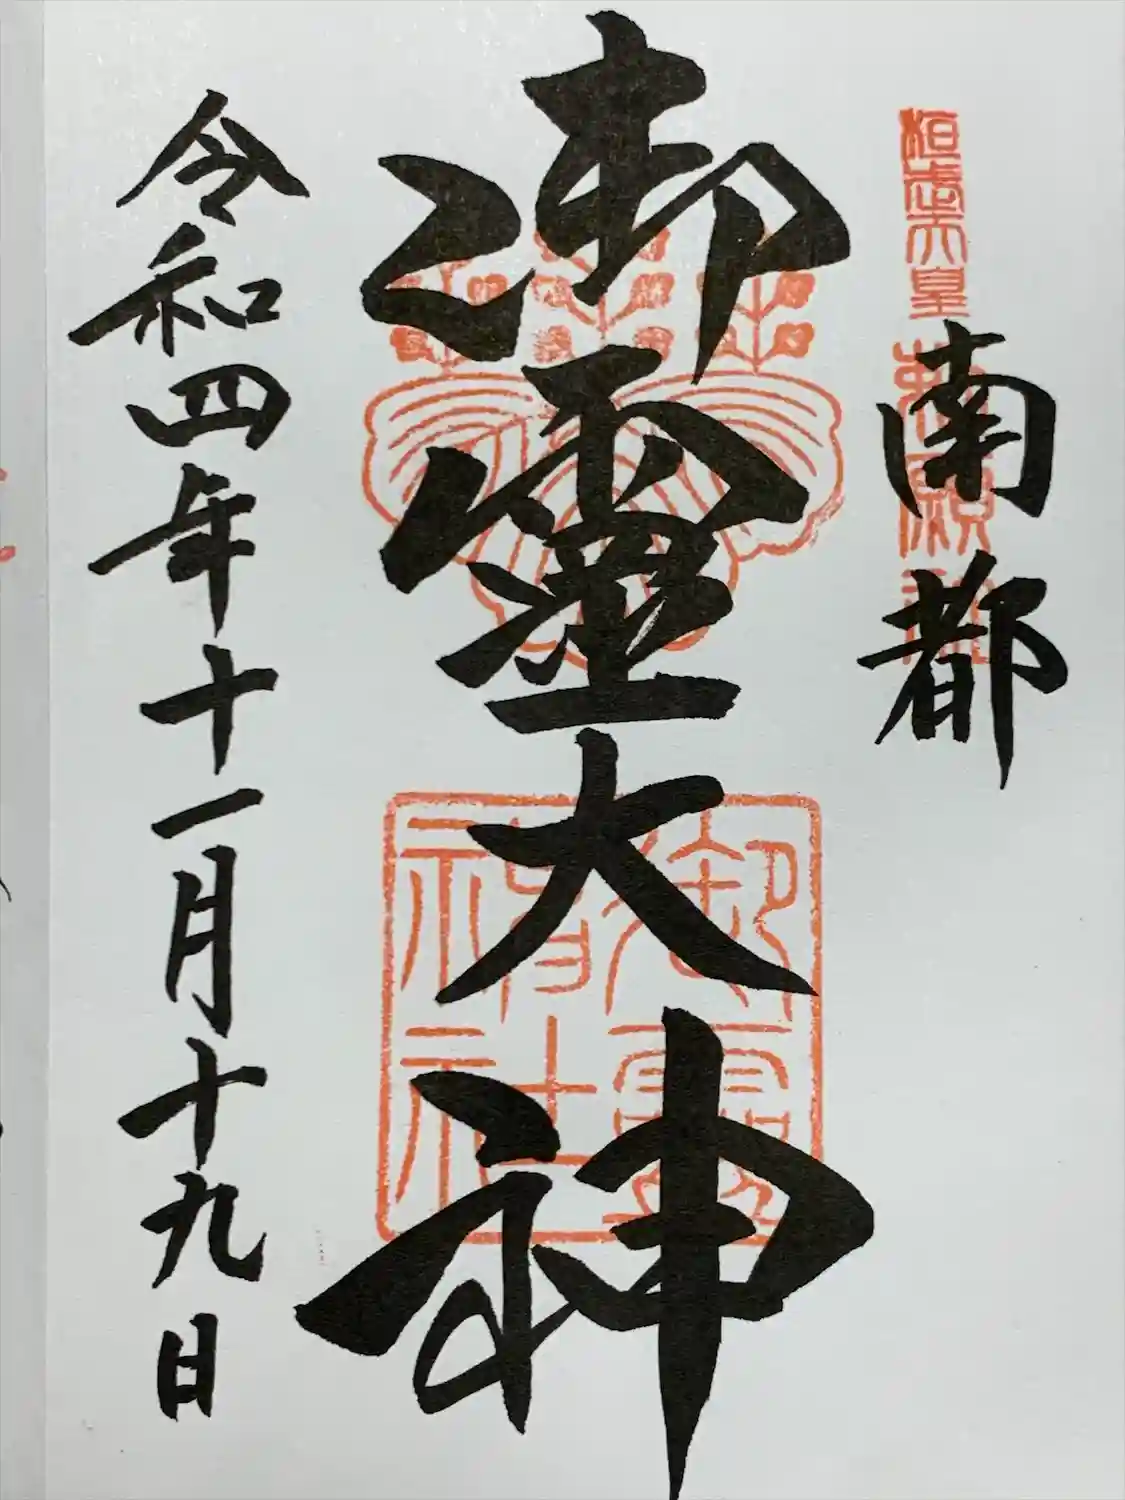 桓武天皇勅願社
南都
御霊大神
御霊神社
令和四年十一月十九日